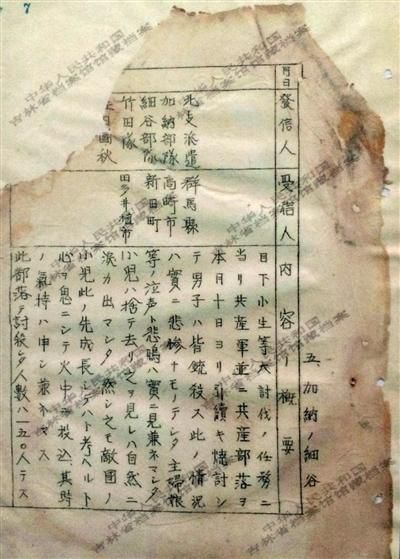 7
五、加納ノ細谷
月日
發信人
受信人
内容ノ概要
北支派遣
加納部隊
細谷部隊
竹田隊
田國秋
群馬縣
高崎市
新田町
田多井植市
目下小生等大討伐ノ任務ニ
当リ共産軍並ニ共産部落ヲ
本月十日ヨリ引續キ焼討シ
テ男子ハ皆銃殺ス此ノ情況
ハ實ニ悲惨ナモノデシタ主婦娘
等ノ泣声ト悲鳴ハ實ニ見兼ネマシタ
小児ハ捨テ去リ之ヲ見レハ自然ニ
涙カ出マシタ然シ之モ敵國ノ
小児此ノ先成長シテハト考ヘルト
心ヲ鬼ニシテ火中ニ投込ム其時
ノ氣持ハ申シ兼ネマス
此部落テ討殺シタ人数ハ一五〇人テス
中华人民共和国
吉林省档案馆馆藏档案